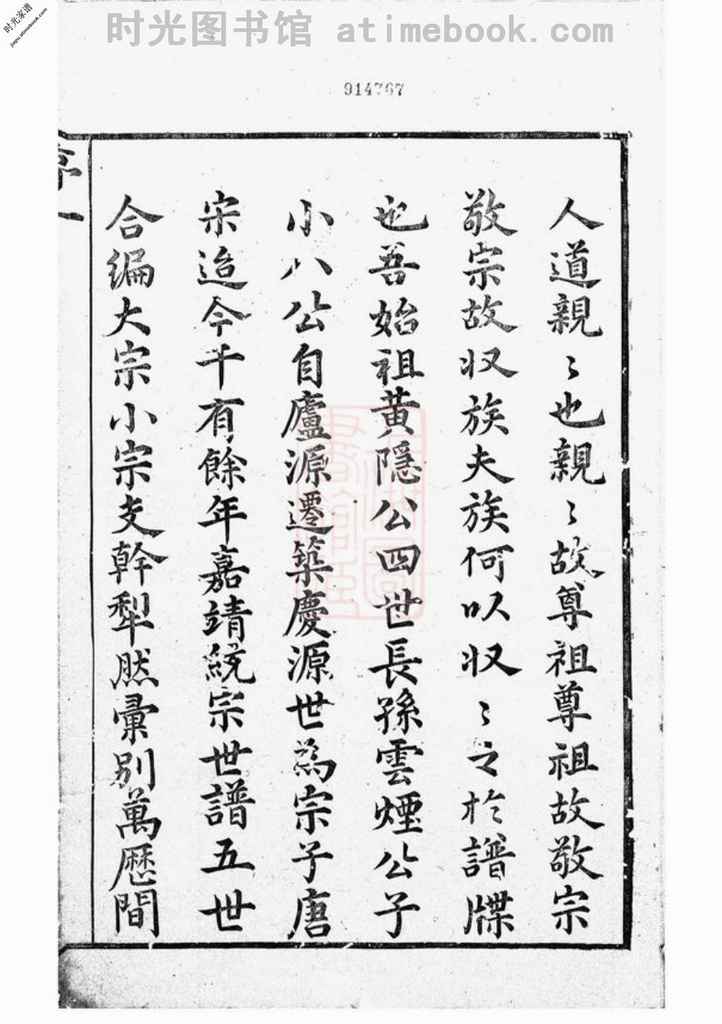 时光家谱
jiapu.atimebook.com
时光图书馆 atimebook.com
914767
人道親〻也親〻故尊祖尊祖故敬宗
敬宗故収族夫族何以収〻之於譜牒
也吾始祖黃隱公四世長孫雲煙公子
小八公自廬源遷築慶源世為宗子唐
宋迨今千有餘年嘉靖統宗世譜五世
合編大宗小宗支幹犁然彚别萬歷間
序一